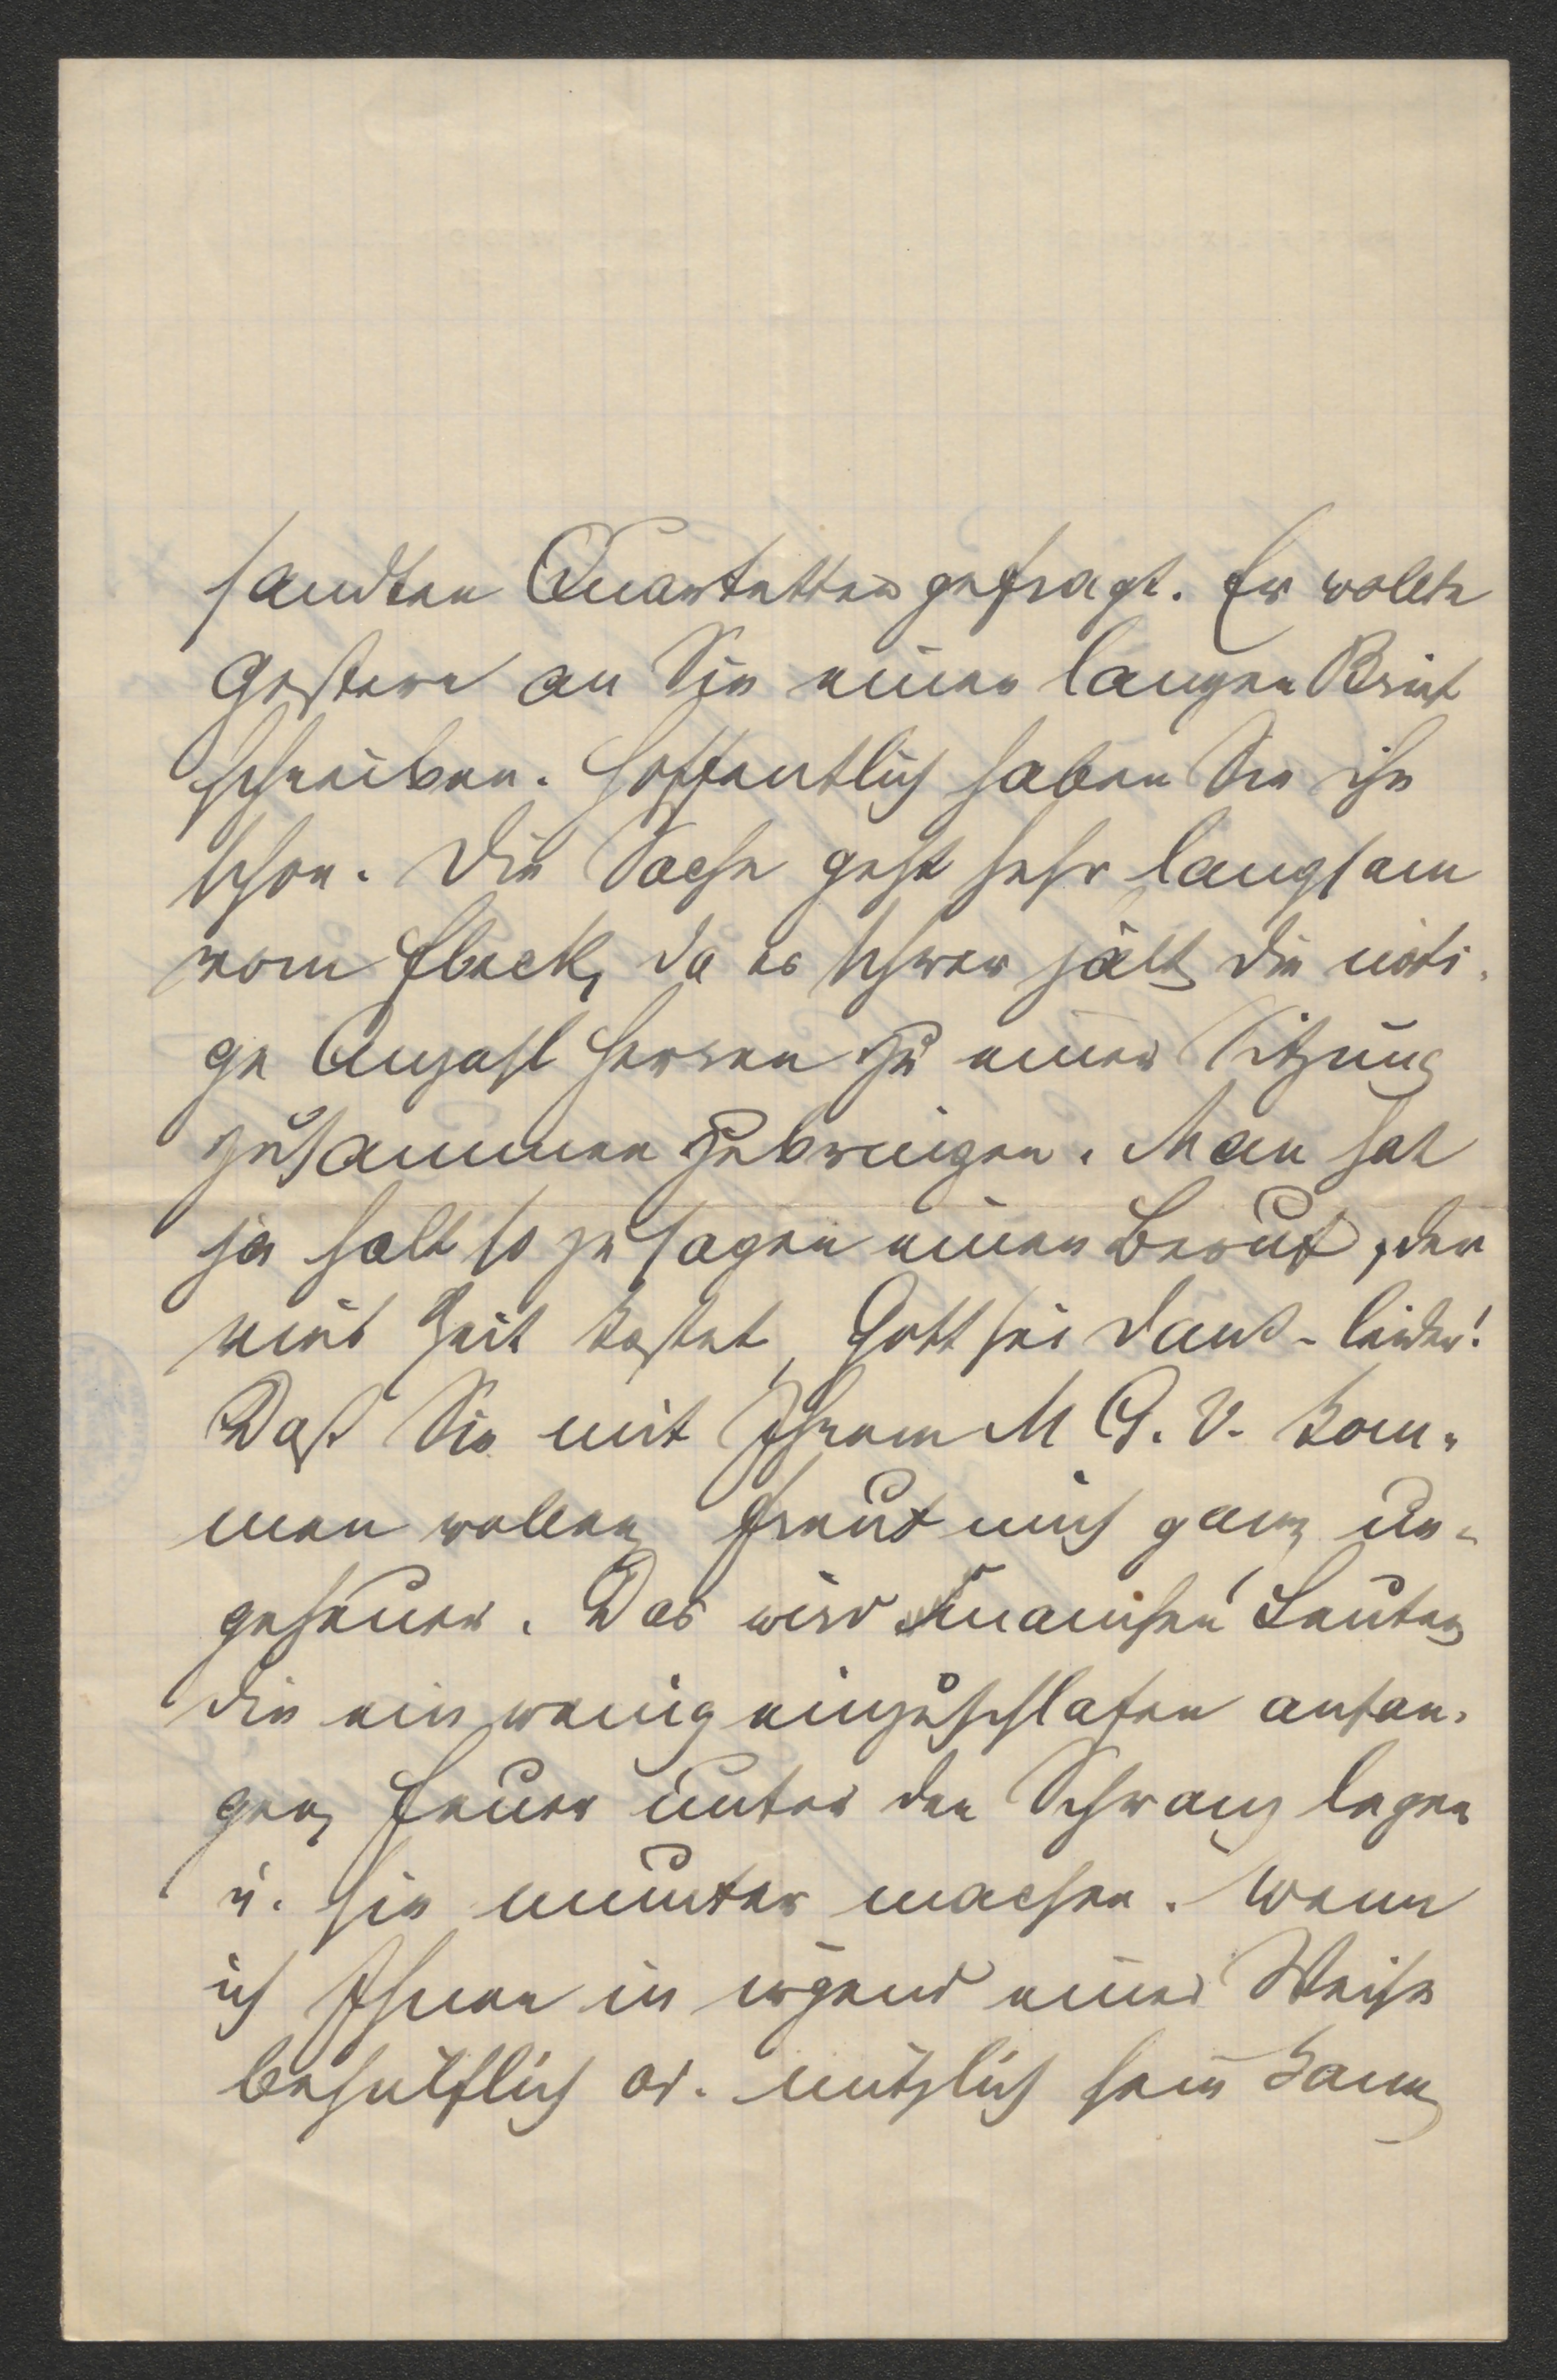 sandten Quartetten gefragt. Er wollte
gestern an Sie einen langen Brief
schreiben. Hoffentlich haben Sie ihn
schon. Die Sache geht sehr langsam
vom Fleck, da es schwer hält, die nöti-
ge Anzahl Herren zu einer Sitzung
zusammen zu bringen. Man hat
ja halt so zu sagen einen Beruf, der
viel Zeit kostet, Gott sei Dank - leider!
Daß Sie mit Ihrem M G. V. kom-
men wollen, freut mich ganz un-
geheuer. Das wird manchen Leuten,
die ein wenig einzuschlafen anfan-
gen, Feuer unter den Schwanz legen
u. sie munter machen. Wenn
ich Ihnen in irgend einer Weise
behülflich od. nützlich sein kann,